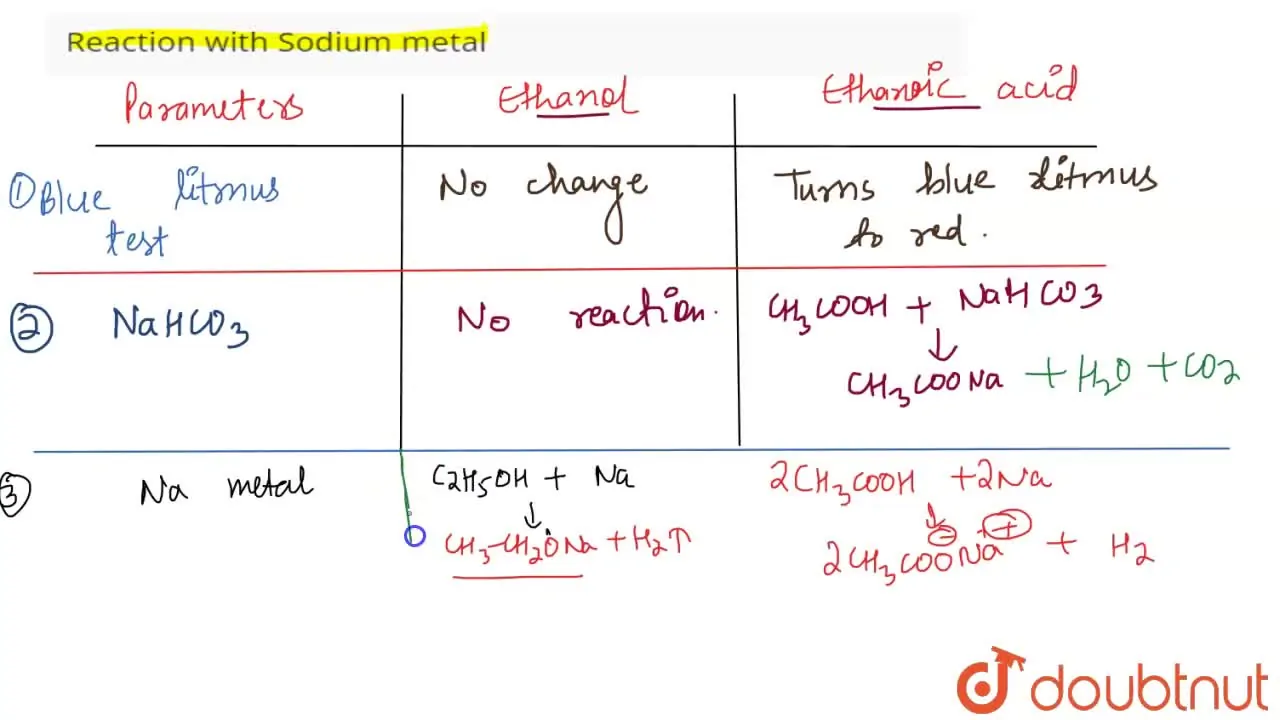 Reaction with Sodium metal
Parameters Ethanol Ethanoic acid
① Blue litmus No change Turns blue litmus
test to red.
② NaHCO3 No reaction. CH3COOH + NaHCO3
↓
CH3COONa + H2O + CO2
③ Na metal C2H5OH + Na 2CH3COOH + 2Na
↓ ↓
CH3-CH2ONa + H2↑ 2CH3COO⊖Na⊕ + H2
doubtnut